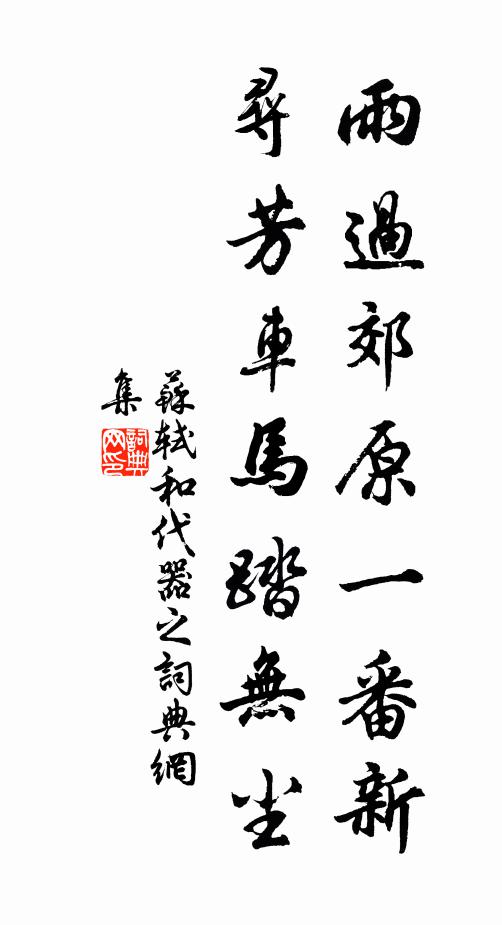 雨過郊原一番新
尋芳車馬踏無尘
蘇軾和代器之詞典網
集
詞典
网印